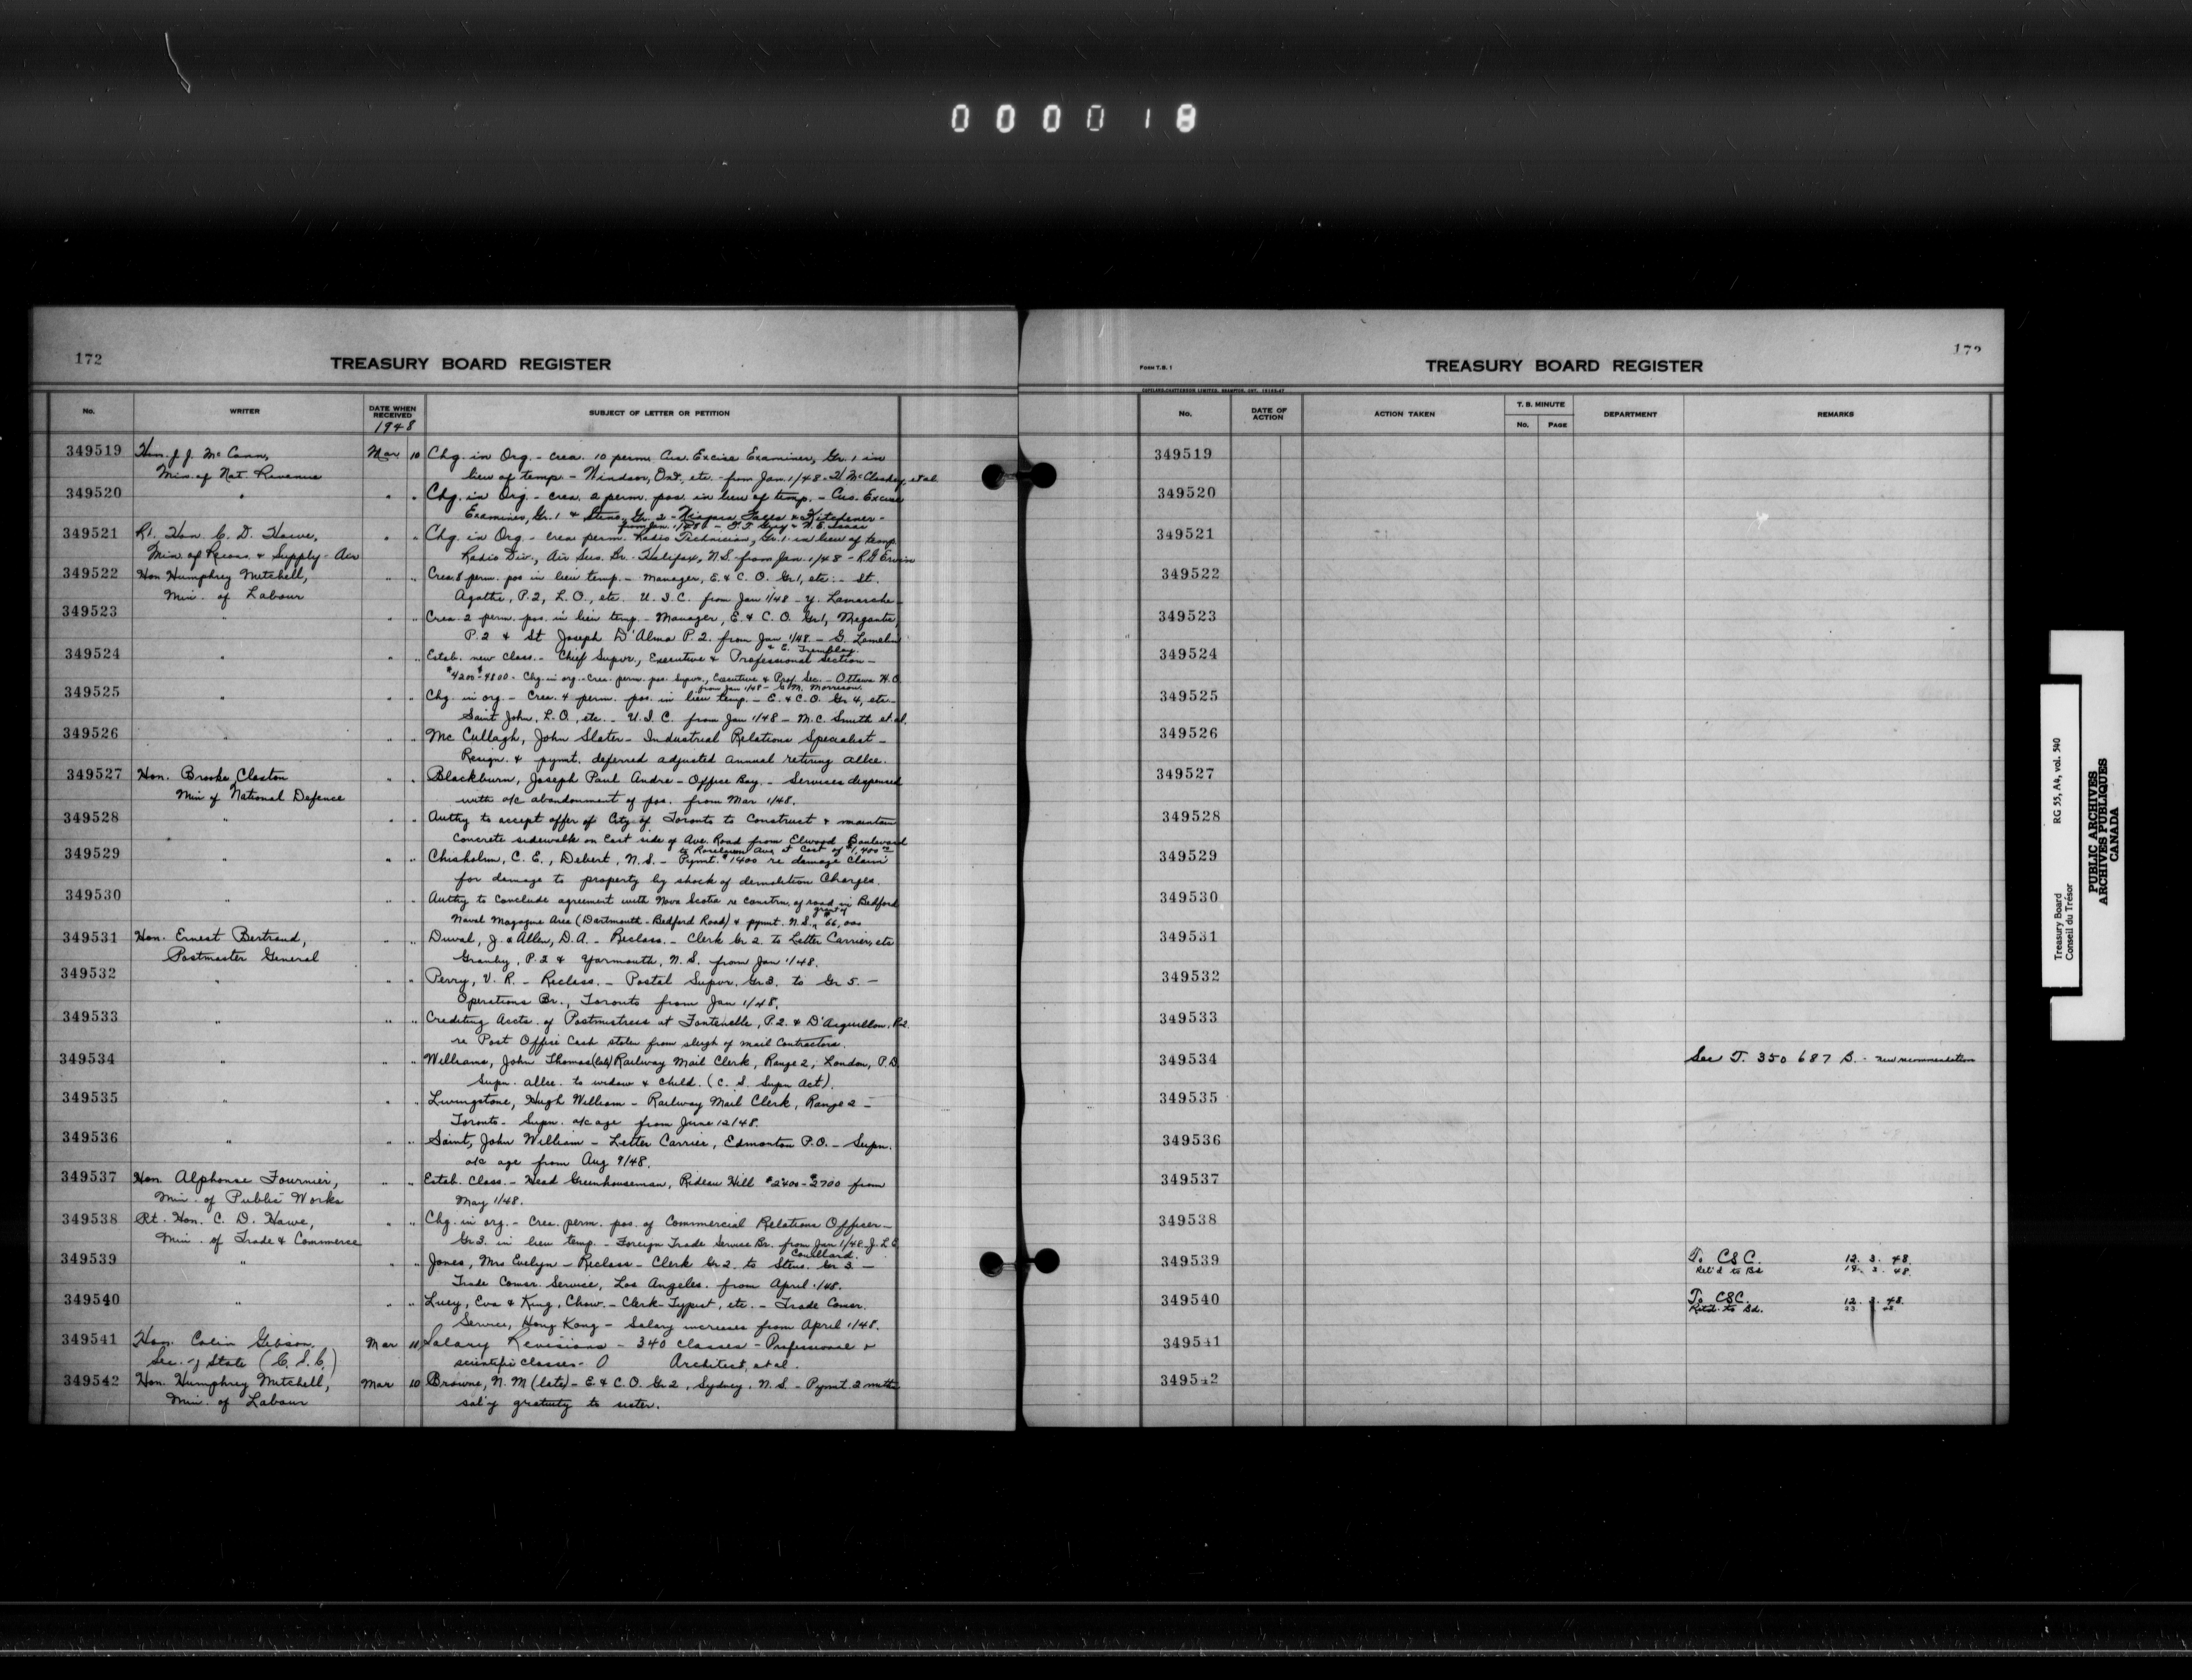 000018
172
TREASURY BOARD REGISTER
No. WRITER DATE WHEN RECEIVED SUBJECT OF LETTER OR PETITION
1948
349519 Hon. J. J. McCann, Mar 10 Chg. in Org. - crea. 10 perm. Cus. Excise Examiner, Gr. 1 in
Min. of Nat. Revenue lieu of temp. - Windsor, Ont., etc. - from Jan. 1/48 - et al
349520 " " " Chg. in Org. - crea. 2 perm. pos. in lieu of temp. - Cus. Excise
Examiner, Gr. 1 & Steno. Gr. 2 - Niagara Falls & Kitchener -
from Jan. 1/48 -
349521 Rt. Hon C. D. Howe, " " Chg. in Org. - crea perm. Radio Technician, Gr. 1 in lieu of temp.
Min. of Recons. & Supply - Air Radio Div., Air Ser. Br. Halifax, N.S. from Jan. 1/48 - R.G. Erwin
349522 Hon Humphrey Mitchell, " " Crea. 8 perm. pos in lieu temp. - Manager, E. & C. O. Gr 1, etc. - St.
Min. of Labour Agathe, P.2, L.O., etc. U.I.C. from Jan 1/48 - Y. Lamarche
349523 " " " Crea. 2 perm. pos. in lieu temp. - Manager, E. & C. O. Gr 1, Megantic,
P.2 & St Joseph D'Alma P.2. from Jan 1/48. - G. Lamelin
& E. Tremblay.
349524 " " " Estab. new class. - Chief Supvr., Executive & Professional Section -
$4200 - $4800 - Chg. in org. - Crea. perm. pos. Supvr., Executive & Prof. Sec. - Ottawa H.O.
from Jan 1/48 - E. M. Morrison.
349525 " " " Chg. in org - Crea. 4 perm. pos. in lieu temp. - E. & C. O. Gr 4, etc -
Saint John, L.O., etc. - U.I.C. from Jan 1/48 - M. C. Smith et al.
349526 " " " McCullagh, John Slater - Industrial Relations Specialist -
Resign. & pymt. deferred adjusted annual retiring allce.
349527 Hon. Brooke Claxton " " Blackburn, Joseph Paul Andre - Office Boy. - Services dispensed
Min of National Defence with a/c abandonment of pos. from Mar 1/48.
349528 " " " Authy to accept offer of City of Toronto to Construct & maintain
Concrete sidewalk on East side of Ave. Road from Elwood Boulevard
to Roselawn Ave at Cost of $1,400.00
349529 " " " Chisholm, C. E., Debert, N.S. - Pymt. $1400 re damage Claim
for damage to property by shock of demolition Charges.
349530 " " " Authy to Conclude agreement with Nova Scotia re constrn. of road in Bedford
Naval Magazine Area (Dartmouth - Bedford Road) & pymt. N.S. grant of $66,000
349531 Hon. Ernest Bertrand, " " Duval, J. & Allen, D.A. - Reclass. - Clerk Gr 2. to Letter Carrier, etc
Postmaster General Granby, P.2 & Yarmouth, N.S. from Jan 1/48.
349532 " " " Perry, V. R. - Reclass. - Postal Supvr. Gr 3. to Gr 5. -
Operations Br., Toronto from Jan 1/48.
349533 " " " Crediting Accts. of Postmistress at Fontenelle, P.2. & D'Aiguillon, P.2.
re Post Office Cash stolen from sleigh of mail Contractors.
349534 " " " Williams, John Thomas (late) Railway Mail Clerk, Range 2, London, P.D.
Supn. allce. to widow & child. (C. S. Supn Act).
349535 " " " Livingstone, Hugh William - Railway Mail Clerk, Range 2 -
Toronto - Supn. a/c age from June 12/48.
349536 " " " Saint, John William - Letter Carrier, Edmonton P.O. - Supn.
a/c age from Aug 9/48.
349537 Hon. Alphonse Fournier, " " Estab. Class. - Head Greenhouseman, Rideau Hill $2400 - $2700 from
Min. of Public Works May 1/48.
349538 Rt. Hon. C. D. Howe, " " Chg. in org. - Crea. perm. pos. of Commercial Relations Officer -
Min. of Trade & Commerce Gr 3. in lieu temp. - Foreign Trade Service Br. from Jan 1/48 - J. L. E.
Couillard.
349539 " " " Jones, Mrs Evelyn - Reclass - Clerk Gr 2. to Steno. Gr 3 -
Trade Comsr. Service, Los Angeles. from April 1/48.
349540 " " " Lucy, Eva & King, Chow. - Clerk-Typist, etc. - Trade Comsr.
Service, Hong Kong - Salary increases from April 1/48.
349541 Hon. Colin Gibson, Mar 11 Salary Revisions - 340 classes - Professional &
Sec. of State (C.S.C.) scientific classes - Architect, et al.
349542 Hon. Humphrey Mitchell, Mar 10 Browne, N. M (late) - E & C. O. Gr 2, Sydney, N.S. - Pymt. 2 mths
Min. of Labour sal'y gratuity to sister.
FORM T.B. 1
TREASURY BOARD REGISTER
172
COPELAND-CHATTERSON LIMITED, BRAMPTON, ONT.
No. DATE OF ACTION ACTION TAKEN T. B. MINUTE No. PAGE DEPARTMENT REMARKS
349519
349520
349521
349522
349523
349524
349525
349526
349527
349528
349529
349530
349531
349532
349533
349534 See T. 350 687 B. - new recommendation
349535
349536
349537
349538
349539 To CSC. 12. 3. 48.
Ret'd to Bd 3. 48.
349540 To CSC. 12. 3. 48.
Retd. to Bd. 23
349541
349542
Treasury Board RG 55, A4, vol. 540
Conseil du Trésor
PUBLIC ARCHIVES
ARCHIVES PUBLIQUES
CANADA